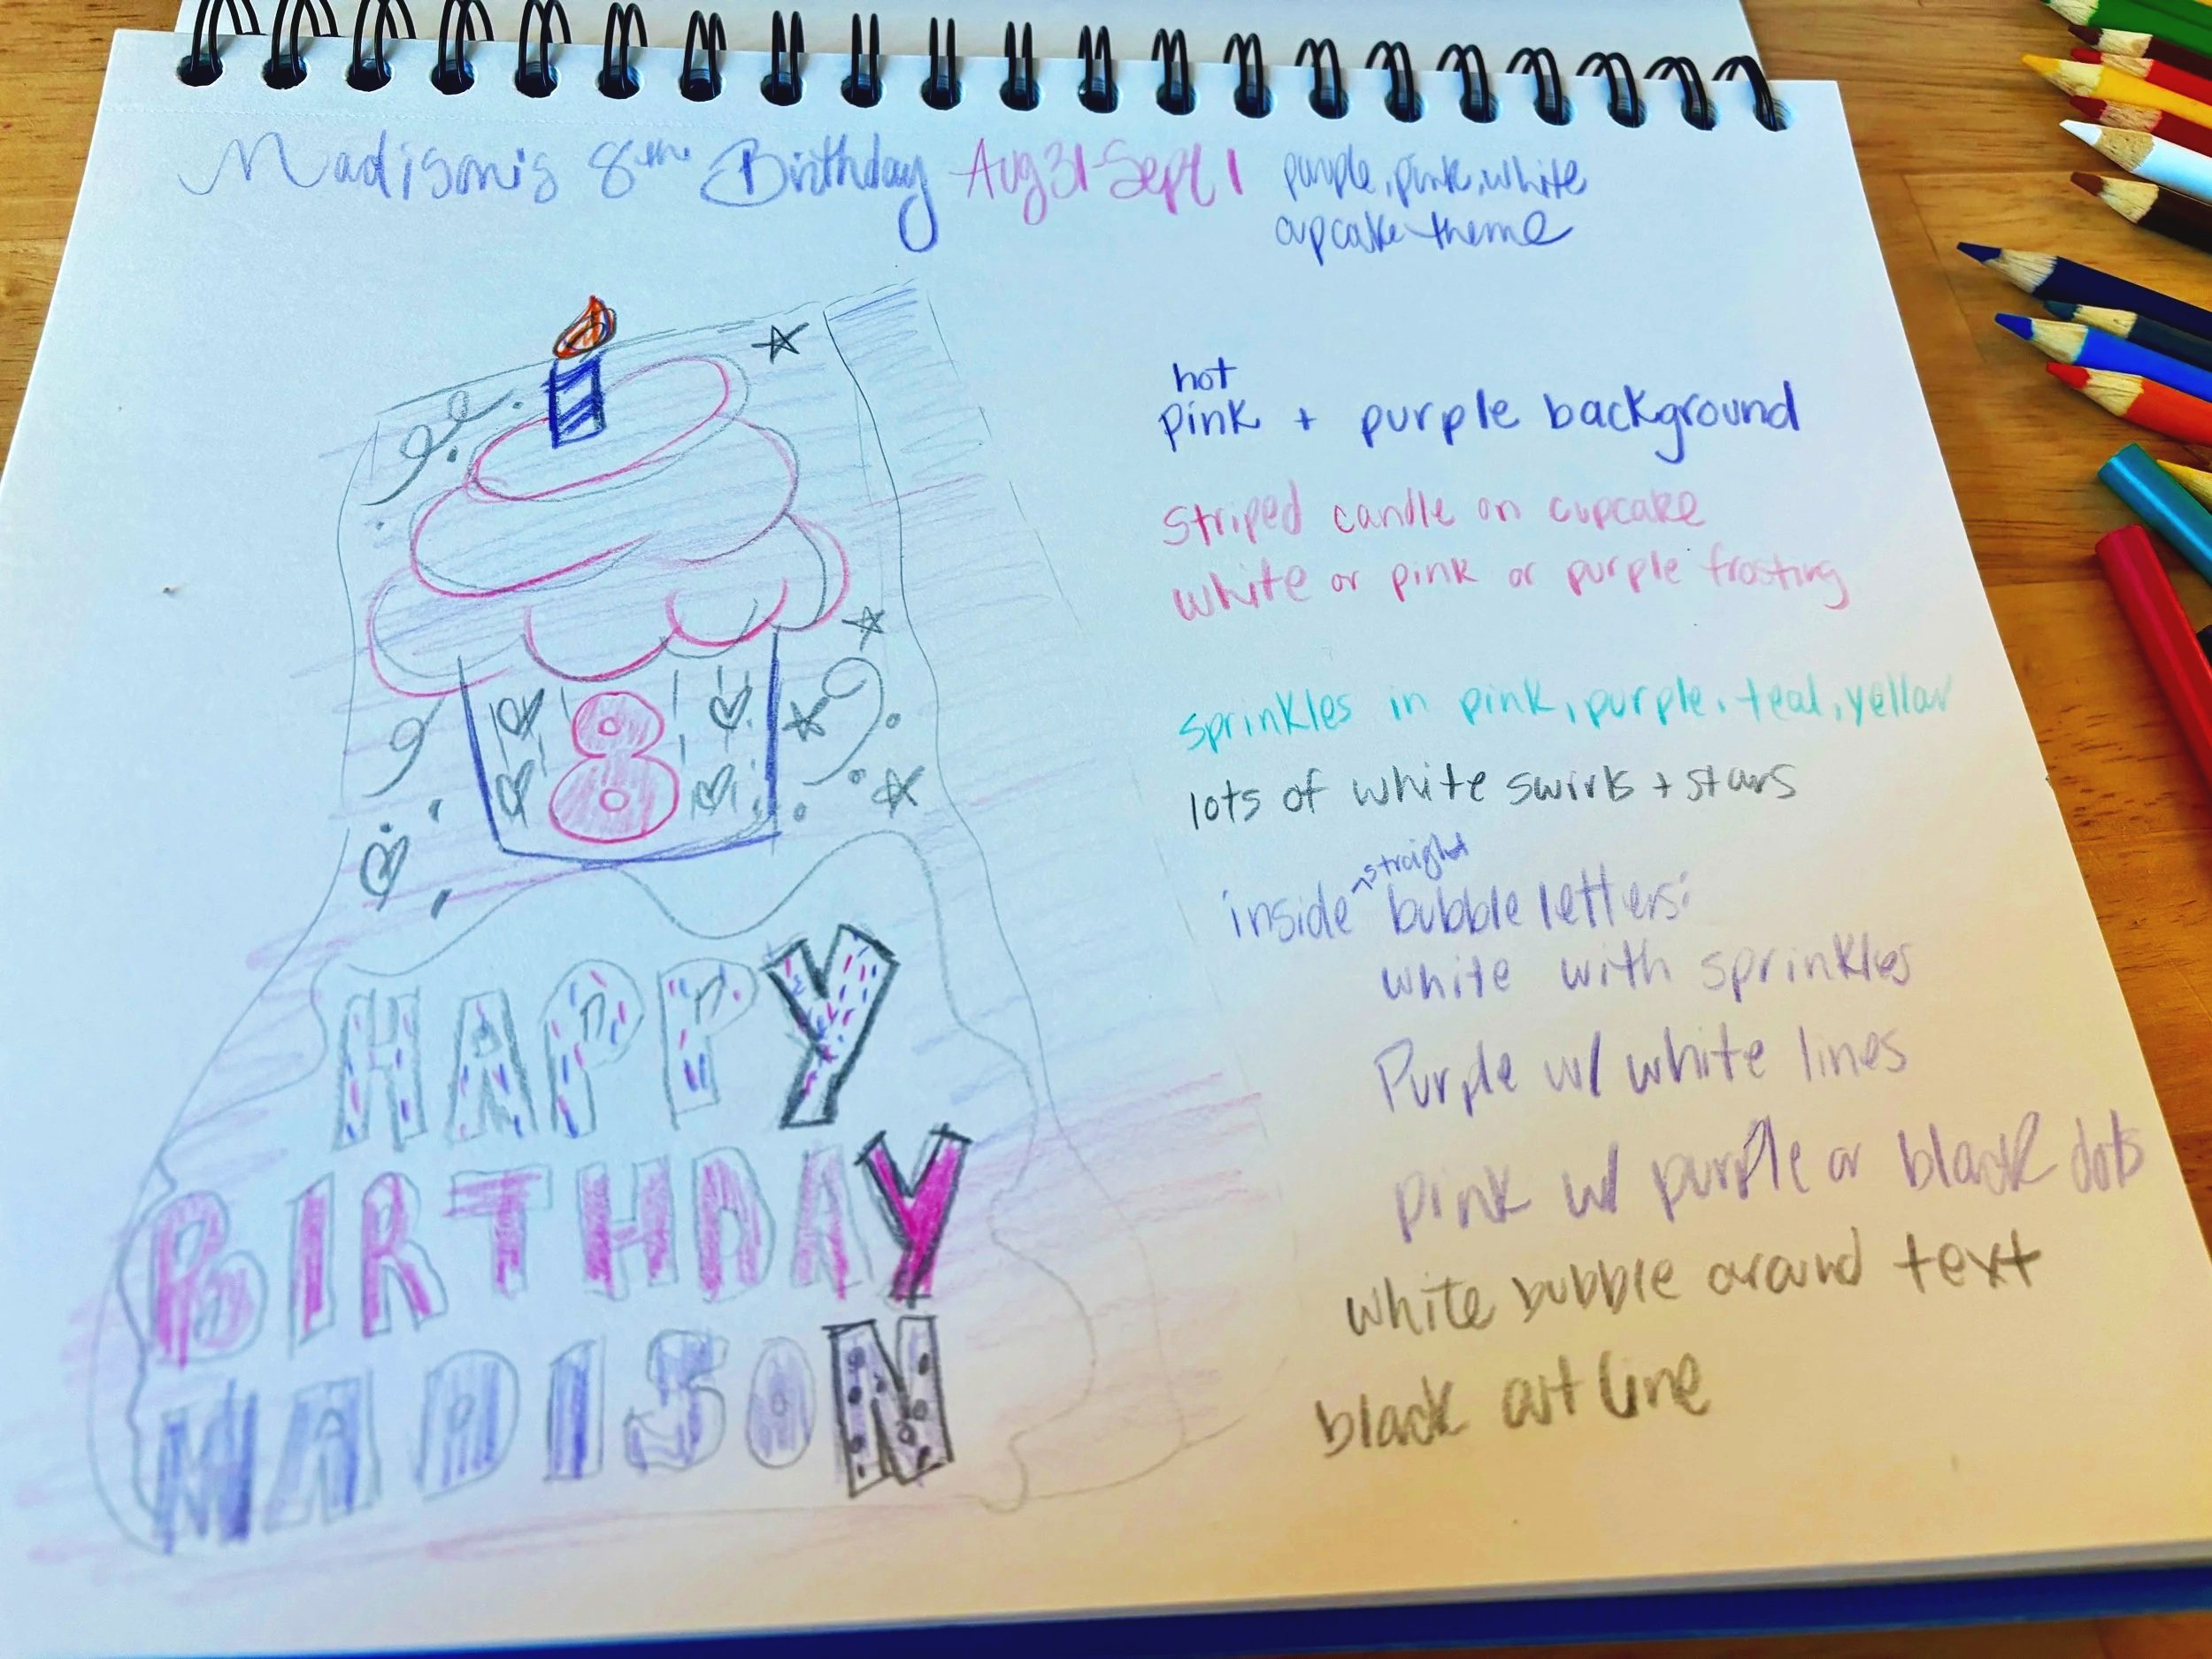 Madison's 8th Birthday Aug 31-Sept 1 purple, pink, white
cupcake theme
hot
pink + purple background
Striped candle on cupcake
white or pink or purple frosting
sprinkles in pink, purple, teal, yellow
lots of white swirls + stars
straight
inside bubble letters:
white with sprinkles
Purple w/ white lines
pink w/ purple or black dots
white bubble around text
black art line
8
HAPPY
BIRTHDAY
MADISON